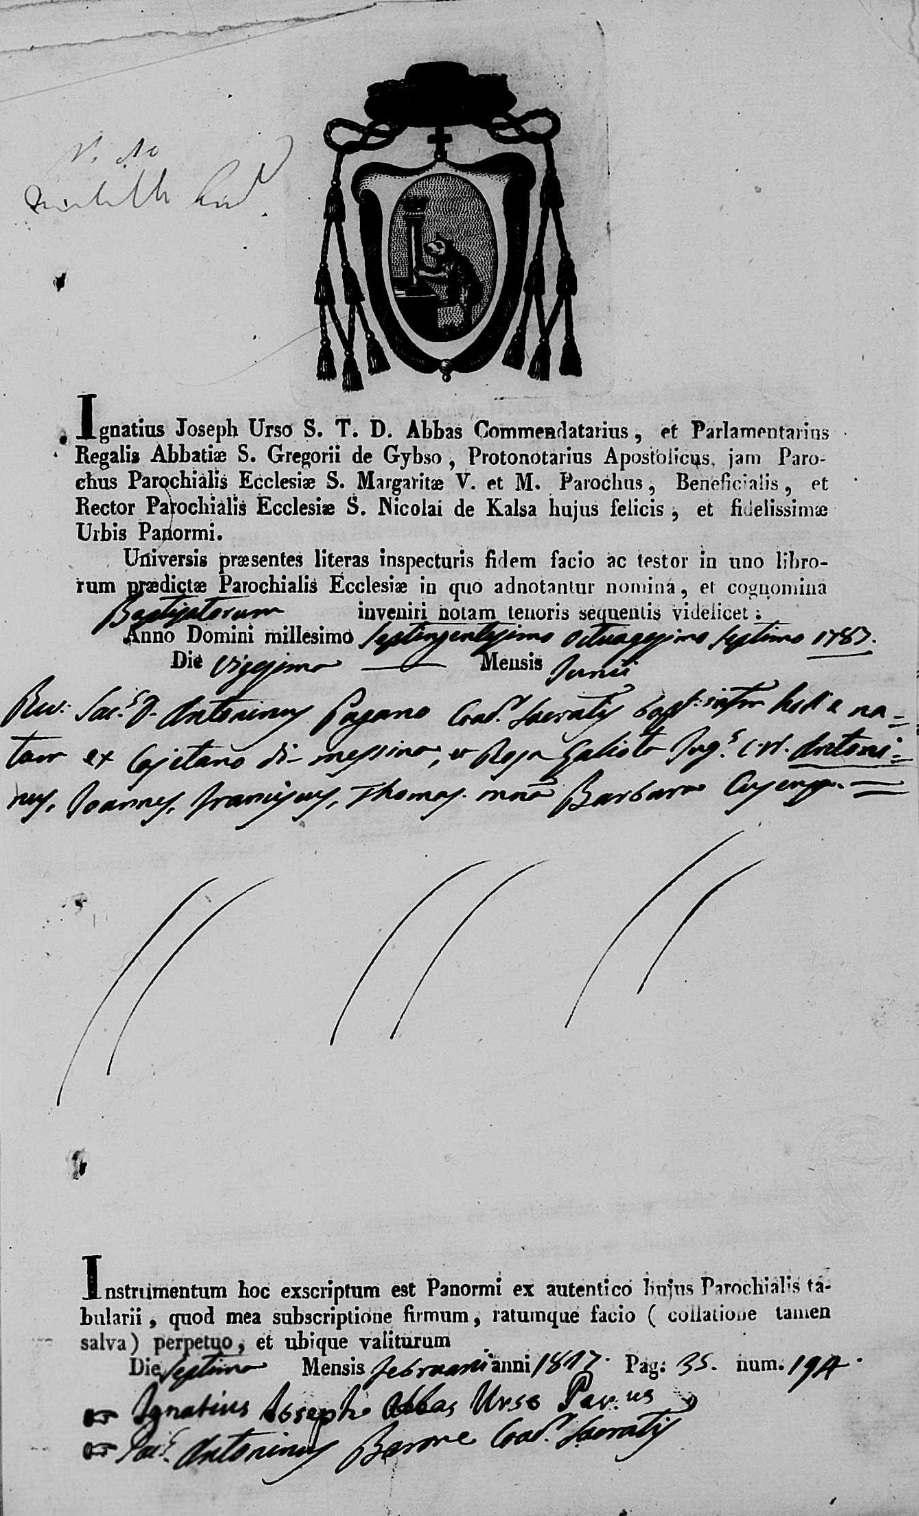 Ignatius Joseph Urso S. T. D. Abbas Commendatarius, et Parlamentarius
Regalis Abbatiæ S. Gregorii de Gybso, Protonotarius Apostolicus, jam Paro-
chus Parochialis Ecclesiæ S. Margaritæ V. et M. Parochus, Beneficialis, et
Rector Parochialis Ecclesiæ S. Nicolai de Kalsa hujus felicis, et fidelissimæ
Urbis Panormi.
Universis præsentes literas inspecturis fidem facio ac testor in uno libro-
rum prædictæ Parochialis Ecclesiæ in quo adnotantur nomina, et cognomina
Baptizatorum inveniri notam tenoris sequentis videlicet:
Anno Domini millesimo septingentesimo octuagesimo septimo 1787.
Die vigesimo Mensis Junii
Rev: Sac. D. Antoninus Pagano Coad. Sacratis bapt: inf. hodie na-
tam ex Cajetano di messina, et Rosa Galioto Jug. C. N. Antoni-
nus, Joannes, Franciscus, Thomas. Barbara
Instrumentum hoc exscriptum est Panormi ex autentico hujus Parochialis ta-
bularii, quod mea subscriptione firmum, ratumque facio ( collatione tamen
salva) perpetuo, et ubique valiturum
Die septimo Mensis februarii anni 1817. Pag: 35. num. 194.
Ignatius Joseph Abbas Urso Par.us
Sac. Antoninus Barone Coad. Sacratis